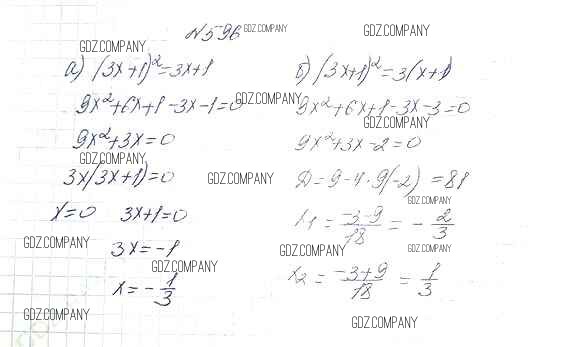 N596
GDZ.COMPANY
GDZ.COMPANY
GDZ.COMPANY
а) (3x+1)²=3x+1
9x²+6x+1-3x-1=0
9x²+3x=0
GDZ.COMPANY
3x(3x+1)=0
x=0 3x+1=0
GDZ.COMPANY
3x=-1
GDZ.COMPANY
x=-1/3
GDZ.COMPANY
б) (3x+1)²=3(x+1)
GDZ.COMPANY
9x²+6x+1-3x-3=0
GDZ.COMPANY
9x²+3x-2=0
GDZ.COMPANY
D=9-4·9(-2)=81
GDZ.COMPANY
x1=(-3-9)/18=-2/3
GDZ.COMPANY
GDZ.COMPANY
x2=(-3+9)/18=1/3
GDZ.COMPANY